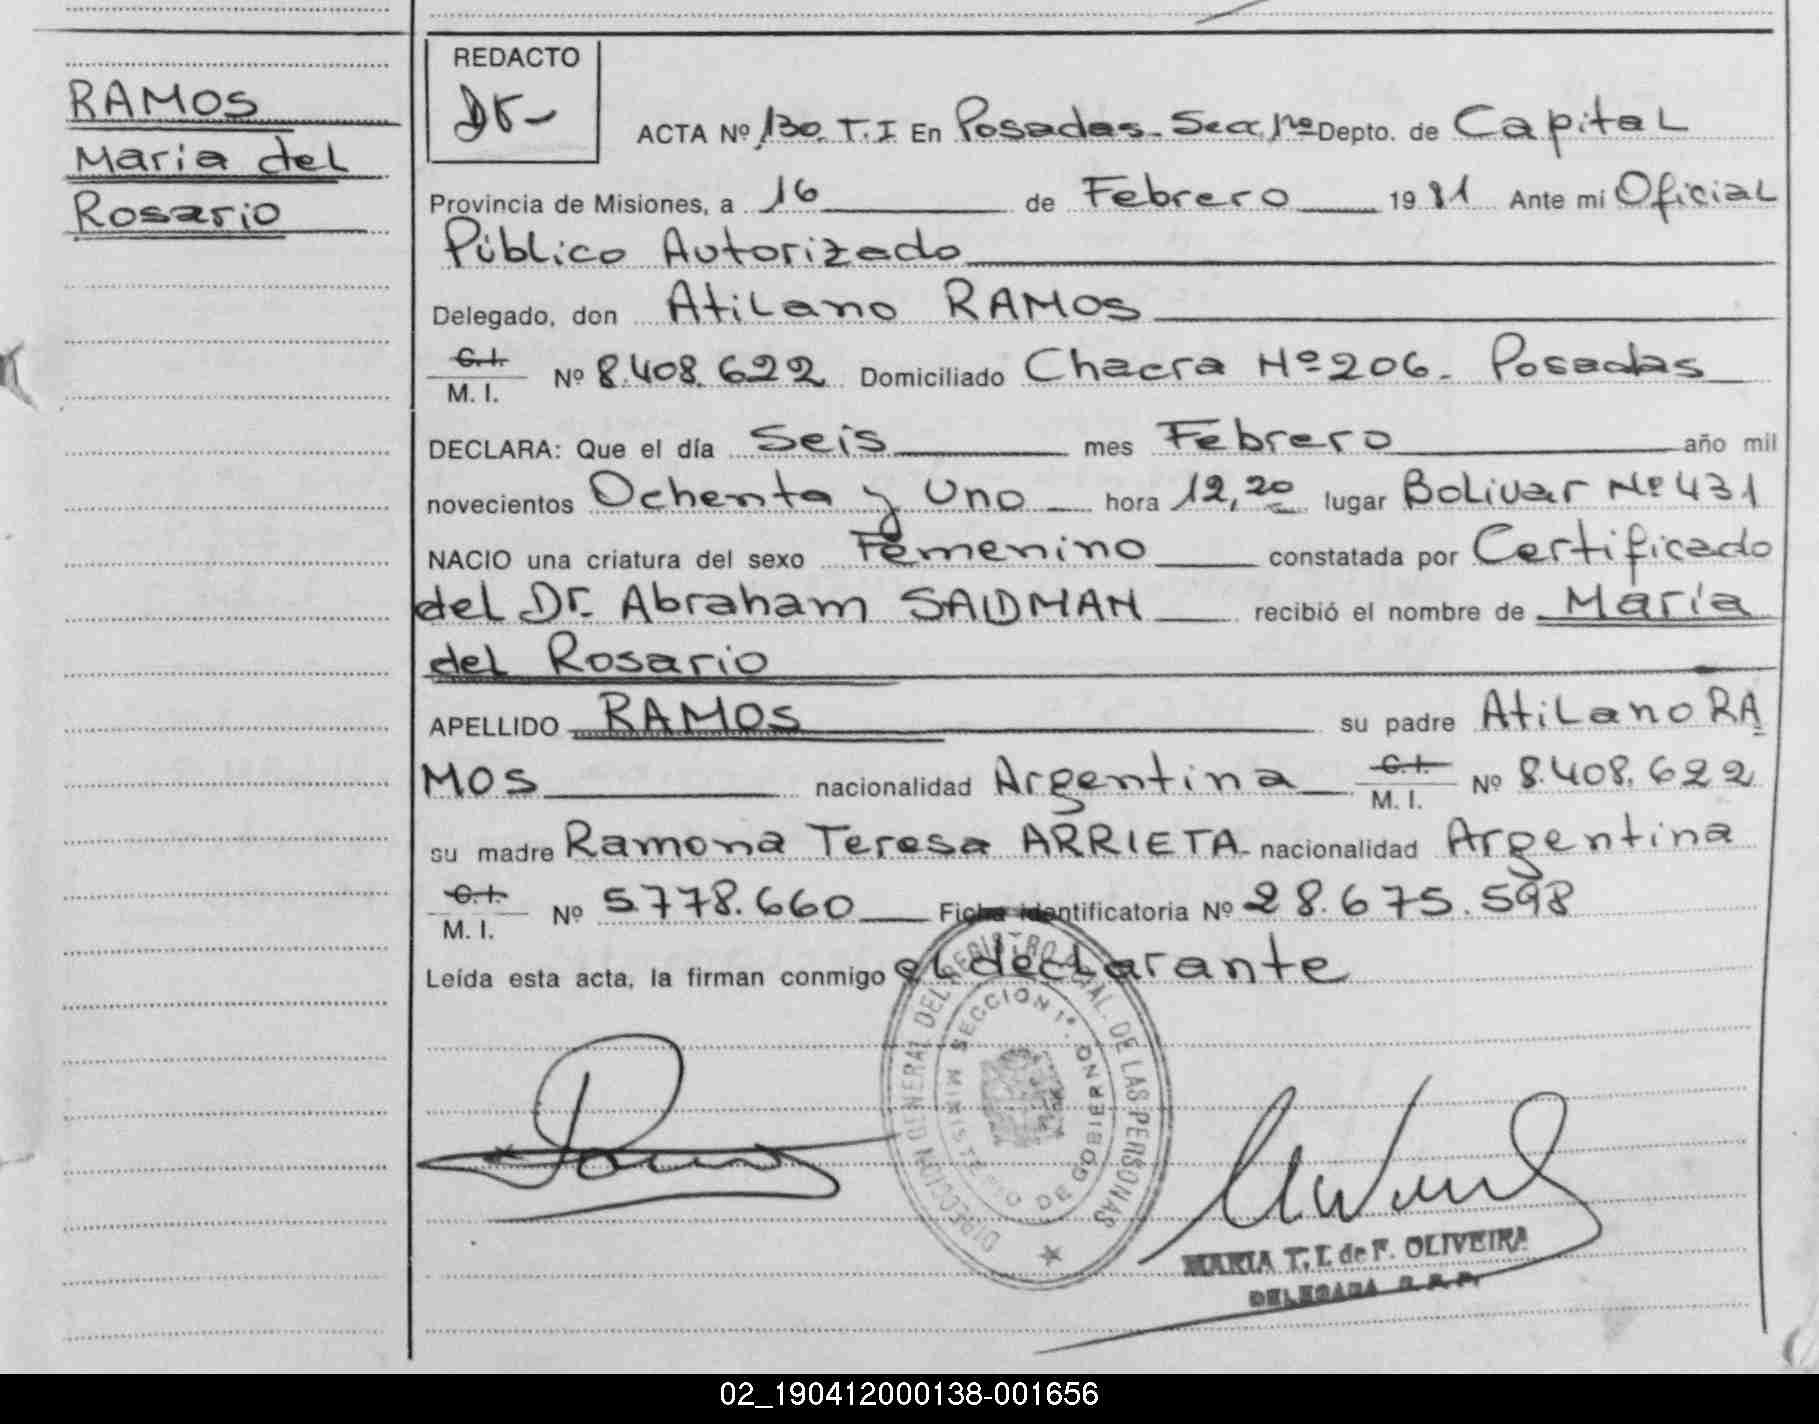 RAMOS
Maria del
Rosario
REDACTO
ACTA Nº 130. T. I En Posadas - Secc. 1ra Depto. de Capital
Provincia de Misiones, a 16 de Febrero 1981 Ante mi Oficial
Público Autorizado
Delegado, don Atilano RAMOS
C.I.
M. I. Nº 8.408.622 Domiciliado Chacra Nº 206 - Posadas
DECLARA: Que el día Seis mes Febrero año mil
novecientos Ochenta y Uno hora 12,20 lugar Bolivar Nº 431
NACIO una criatura del sexo Femenino constatada por Certificado
del Dr. Abraham SAIDMAN recibió el nombre de María
del Rosario
APELLIDO RAMOS su padre Atilano RA
MOS nacionalidad Argentina C.I. M. I. Nº 8.408.622
su madre Ramona Teresa ARRIETA - nacionalidad Argentina
C.I.
M. I. Nº 5.778.660 Ficha identificatoria Nº 28.675.598
Leída esta acta, la firman conmigo el declarante
DIRECCION GENERAL DEL REGISTRO PCIAL. DE LAS PERSONAS
SECCION 1ª.
MINISTERIO DE GOBIERNO
MARIA T. I. de F. OLIVEIRA
DELEGADA R. P. P.
02_190412000138-001656